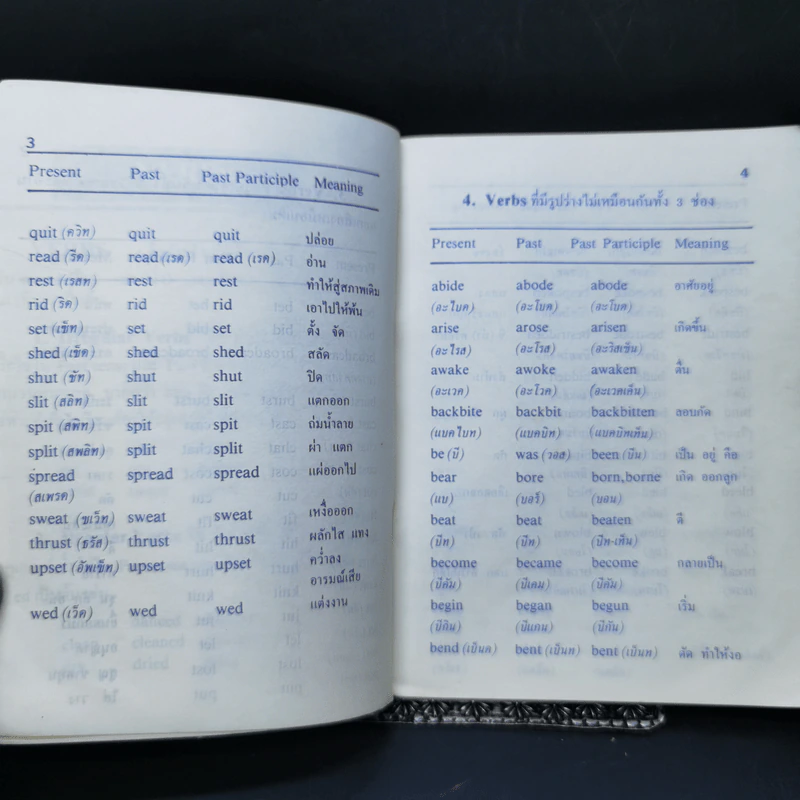 3
Present Past Past Participle Meaning
quit (ควิท) quit quit ปล่อย
read (รีด) read (เรด) read (เรด) อ่าน
rest (เรสท) rest rest ทำให้สู่สภาพเดิม
rid (ริด) rid rid เอาไปให้พ้น
set (เซ็ท) set set ตั้ง จัด
shed (เช็ด) shed shed สลัด
shut (ชัท) shut shut ปิด
slit (สลิท) slit slit แตกออก
spit (สพิท) spit spit ถ่มน้ำลาย
split (สพลิท) split split ผ่า แตก
spread spread spread แผ่ออกไป
(สเพรด)
sweat (ซเว็ท) sweat sweat เหงื่อออก
thrust (ธรัส) thrust thrust ผลักไส แทง
upset (อัพเซ็ท) upset upset คว่ำลง
อารมณ์เสีย
wed (เว็ด) wed wed แต่งงาน
4
4. Verbs ที่มีรูปร่างไม่เหมือนกันทั้ง 3 ช่อง
Present Past Past Participle Meaning
abide abode abode อาศัยอยู่
(อะไบด) (อะโบด) (อะโบด)
arise arose arisen เกิดขึ้น
(อะไรส) (อะโรส) (อะริสเซ็น)
awake awoke awaken ตื่น
(อะเวค) (อะโวค) (อะเวคเค็น)
backbite backbit backbitten ลอบกัด
(แบคไบท) (แบคบิท) (แบคบิทเท็น)
be (บี) was (วอส) been (บีน) เป็น อยู่ คือ
bear bore born,borne เกิด ออกลูก
(แบ) (บอร์) (บอน)
beat beat beaten ตี
(บีท) (บีท) (บีท-เท็น)
become became become กลายเป็น
(บีคัม) (บีเคม) (บีคัม)
begin began begun เริ่ม
(บีกิน) (บีแกน) (บีกัน)
bend (เบ็นด) bent (เบ็นท) bent (เบ็นท) ดัด ทำให้งอ